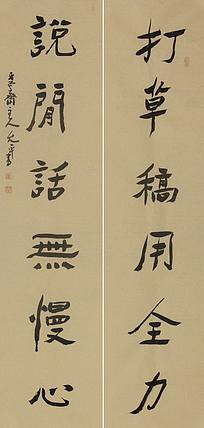 打草稿用全力
說閒話無慢心